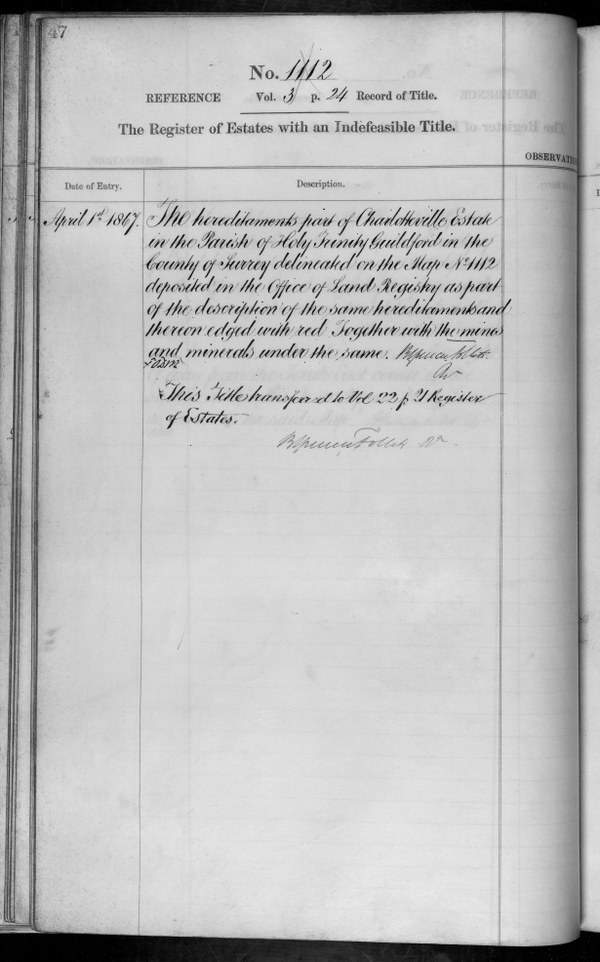 47
No. 1112
REFERENCE Vol. 3 p. 24 Record of Title.
The Register of Estates with an Indefeasible Title.
OBSERVATIO
Date of Entry. Description.
April 1st 1867. The hereditaments part of Charlotteville Estate
in the Parish of Holy Trinity Guildford in the
County of Surrey delineated on the Map No. 1112
deposited in the Office of Land Registry as part
of the description of the same hereditaments and
thereon edged with red Together with the mines
and minerals under the same. Follett
This Title transferred to Vol 22 p 21 Register
of Estates.
Follett